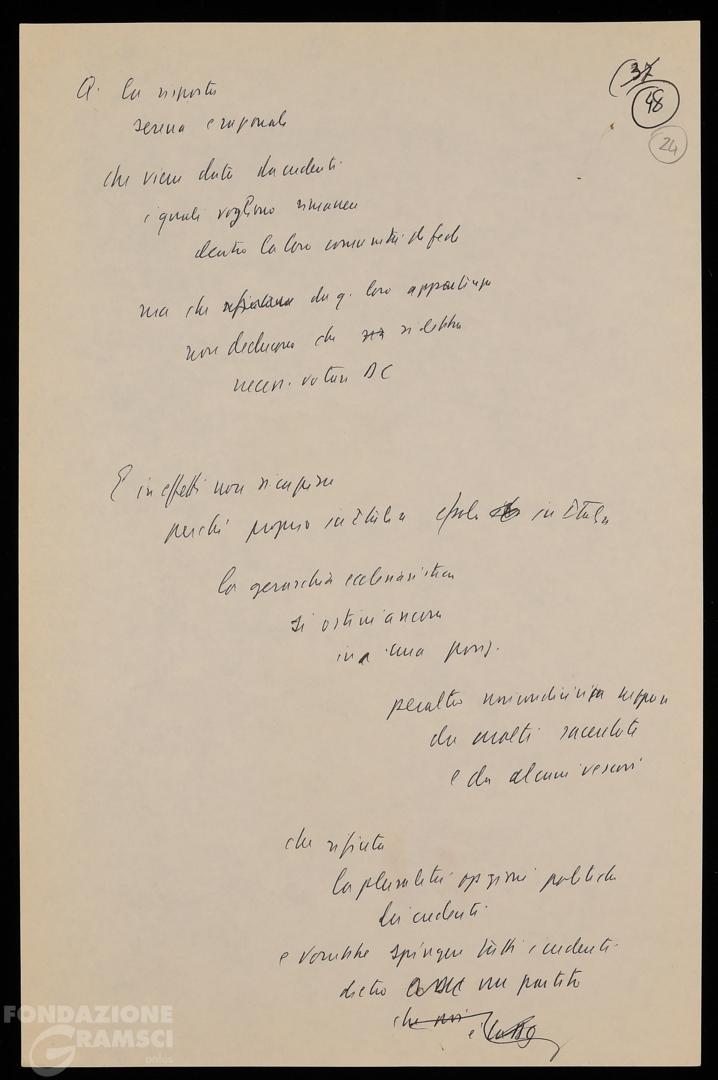 37
48
24
Q. la risposta
serena e razionale
che viene data da credenti
i quali vogliono rimanere
dentro la loro comunità di fede
ma che da q. loro appartenenza
non deducono che si debba
necess. votare DC
E in effetti non si capisce
perché proprio in Italia e solo in Italia
la gerarchia ecclesiastica
si ostini ancora
in una posiz.
peraltro non condivisa neppure
da molti sacerdoti
e da alcuni vescovi
che rifiuta
la pluralità opzioni politiche
dei credenti
e vorrebbe spingere tutti i credenti
dietro un partito
che
e
FONDAZIONE
GRAMSCI
onlus